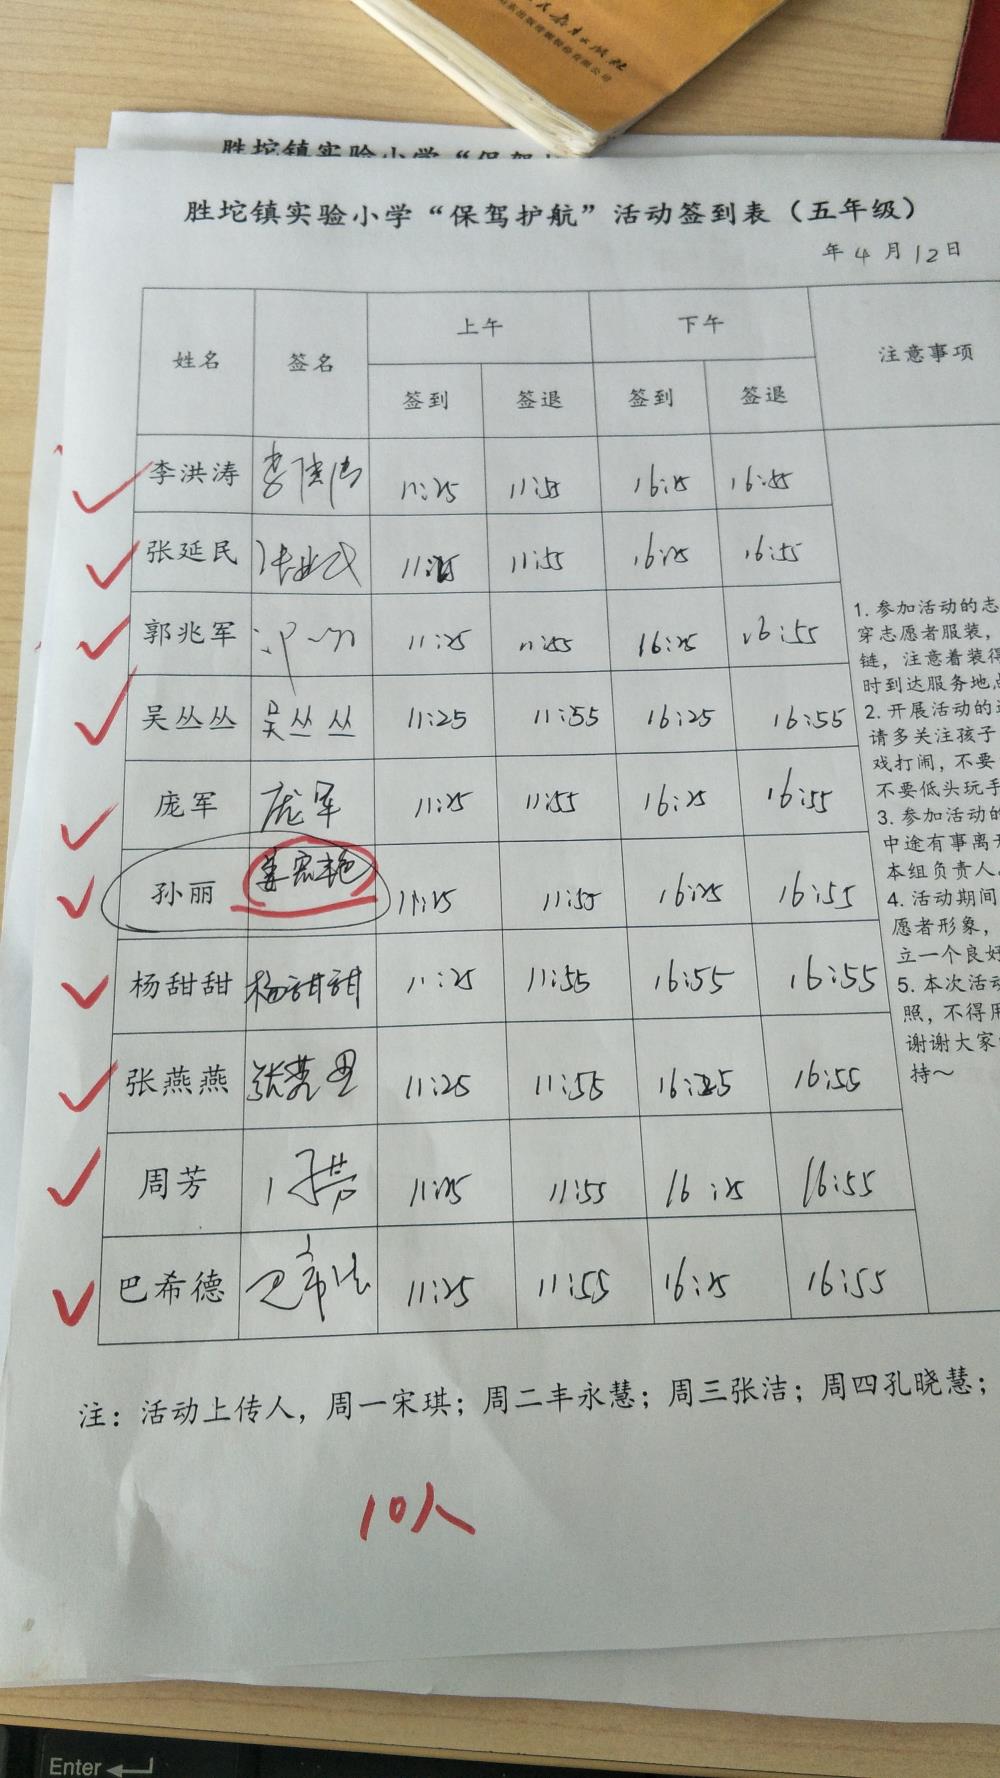 人民教育出版社
胜坨镇实验小学“保驾
胜坨镇实验小学“保驾护航”活动签到表（五年级）
年 4 月 12 日
姓名 签名 上午 下午 注意事项
签到 签退 签到 签退
李洪涛 李洪涛 11:25 11:55 16:25 16:55
张延民 11:25 11:55 16:25 16:55
郭兆军 11:25 11:55 16:25 16:55
吴丛丛 吴丛丛 11:25 11:55 16:25 16:55
庞军 庞军 11:25 11:55 16:25 16:55
孙丽 11:25 11:55 16:25 16:55
杨甜甜 杨甜甜 11:25 11:55 16:55 16:55
张燕燕 张燕 11:25 11:55 16:25 16:55
周芳 周芳 11:25 11:55 16:25 16:55
巴希德 巴希德 11:25 11:55 16:25 16:55
1. 参加活动的志
穿志愿者服装，
链，注意着装得
时到达服务地点
2. 开展活动的过
请多关注孩子
戏打闹，不要
不要低头玩手
3. 参加活动的
中途有事离开
本组负责人。
4. 活动期间
愿者形象，
立一个良好
5. 本次活动
照，不得用
谢谢大家
持～
注：活动上传人，周一宋琪；周二丰永慧；周三张洁；周四孔晓慧；
10人
Enter